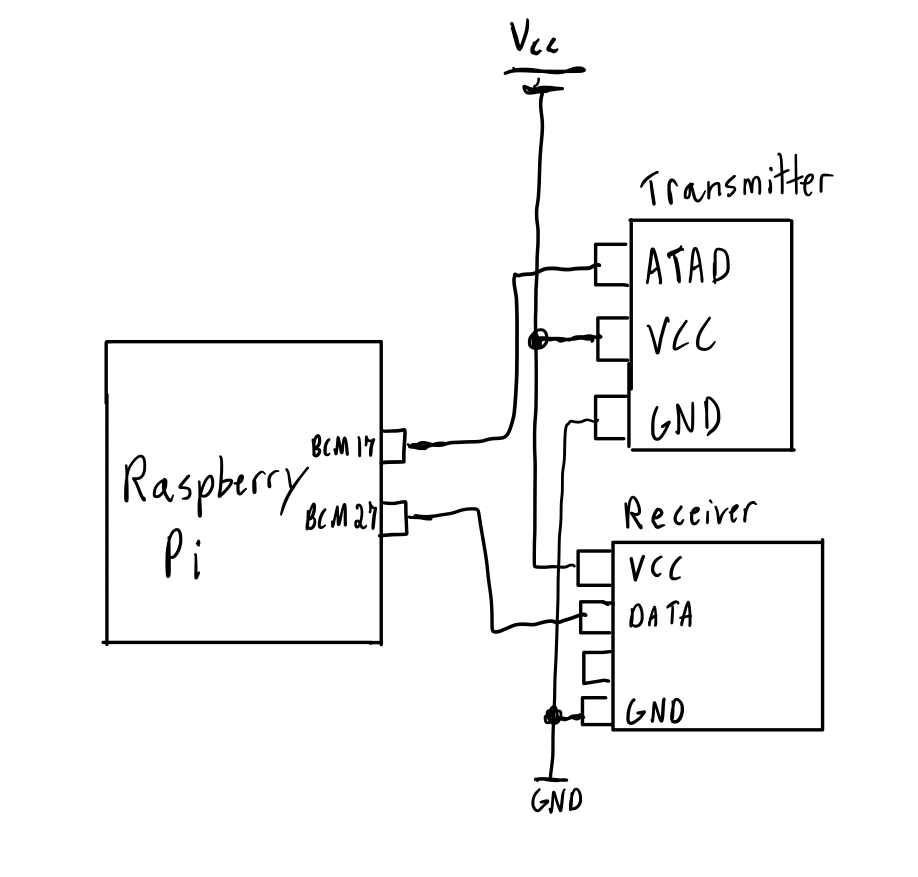 Vcc
Transmitter
ATAD
VCC
GND
BCM 17
Raspberry
Pi
BCM 27
Receiver
VCC
DATA
GND
GND